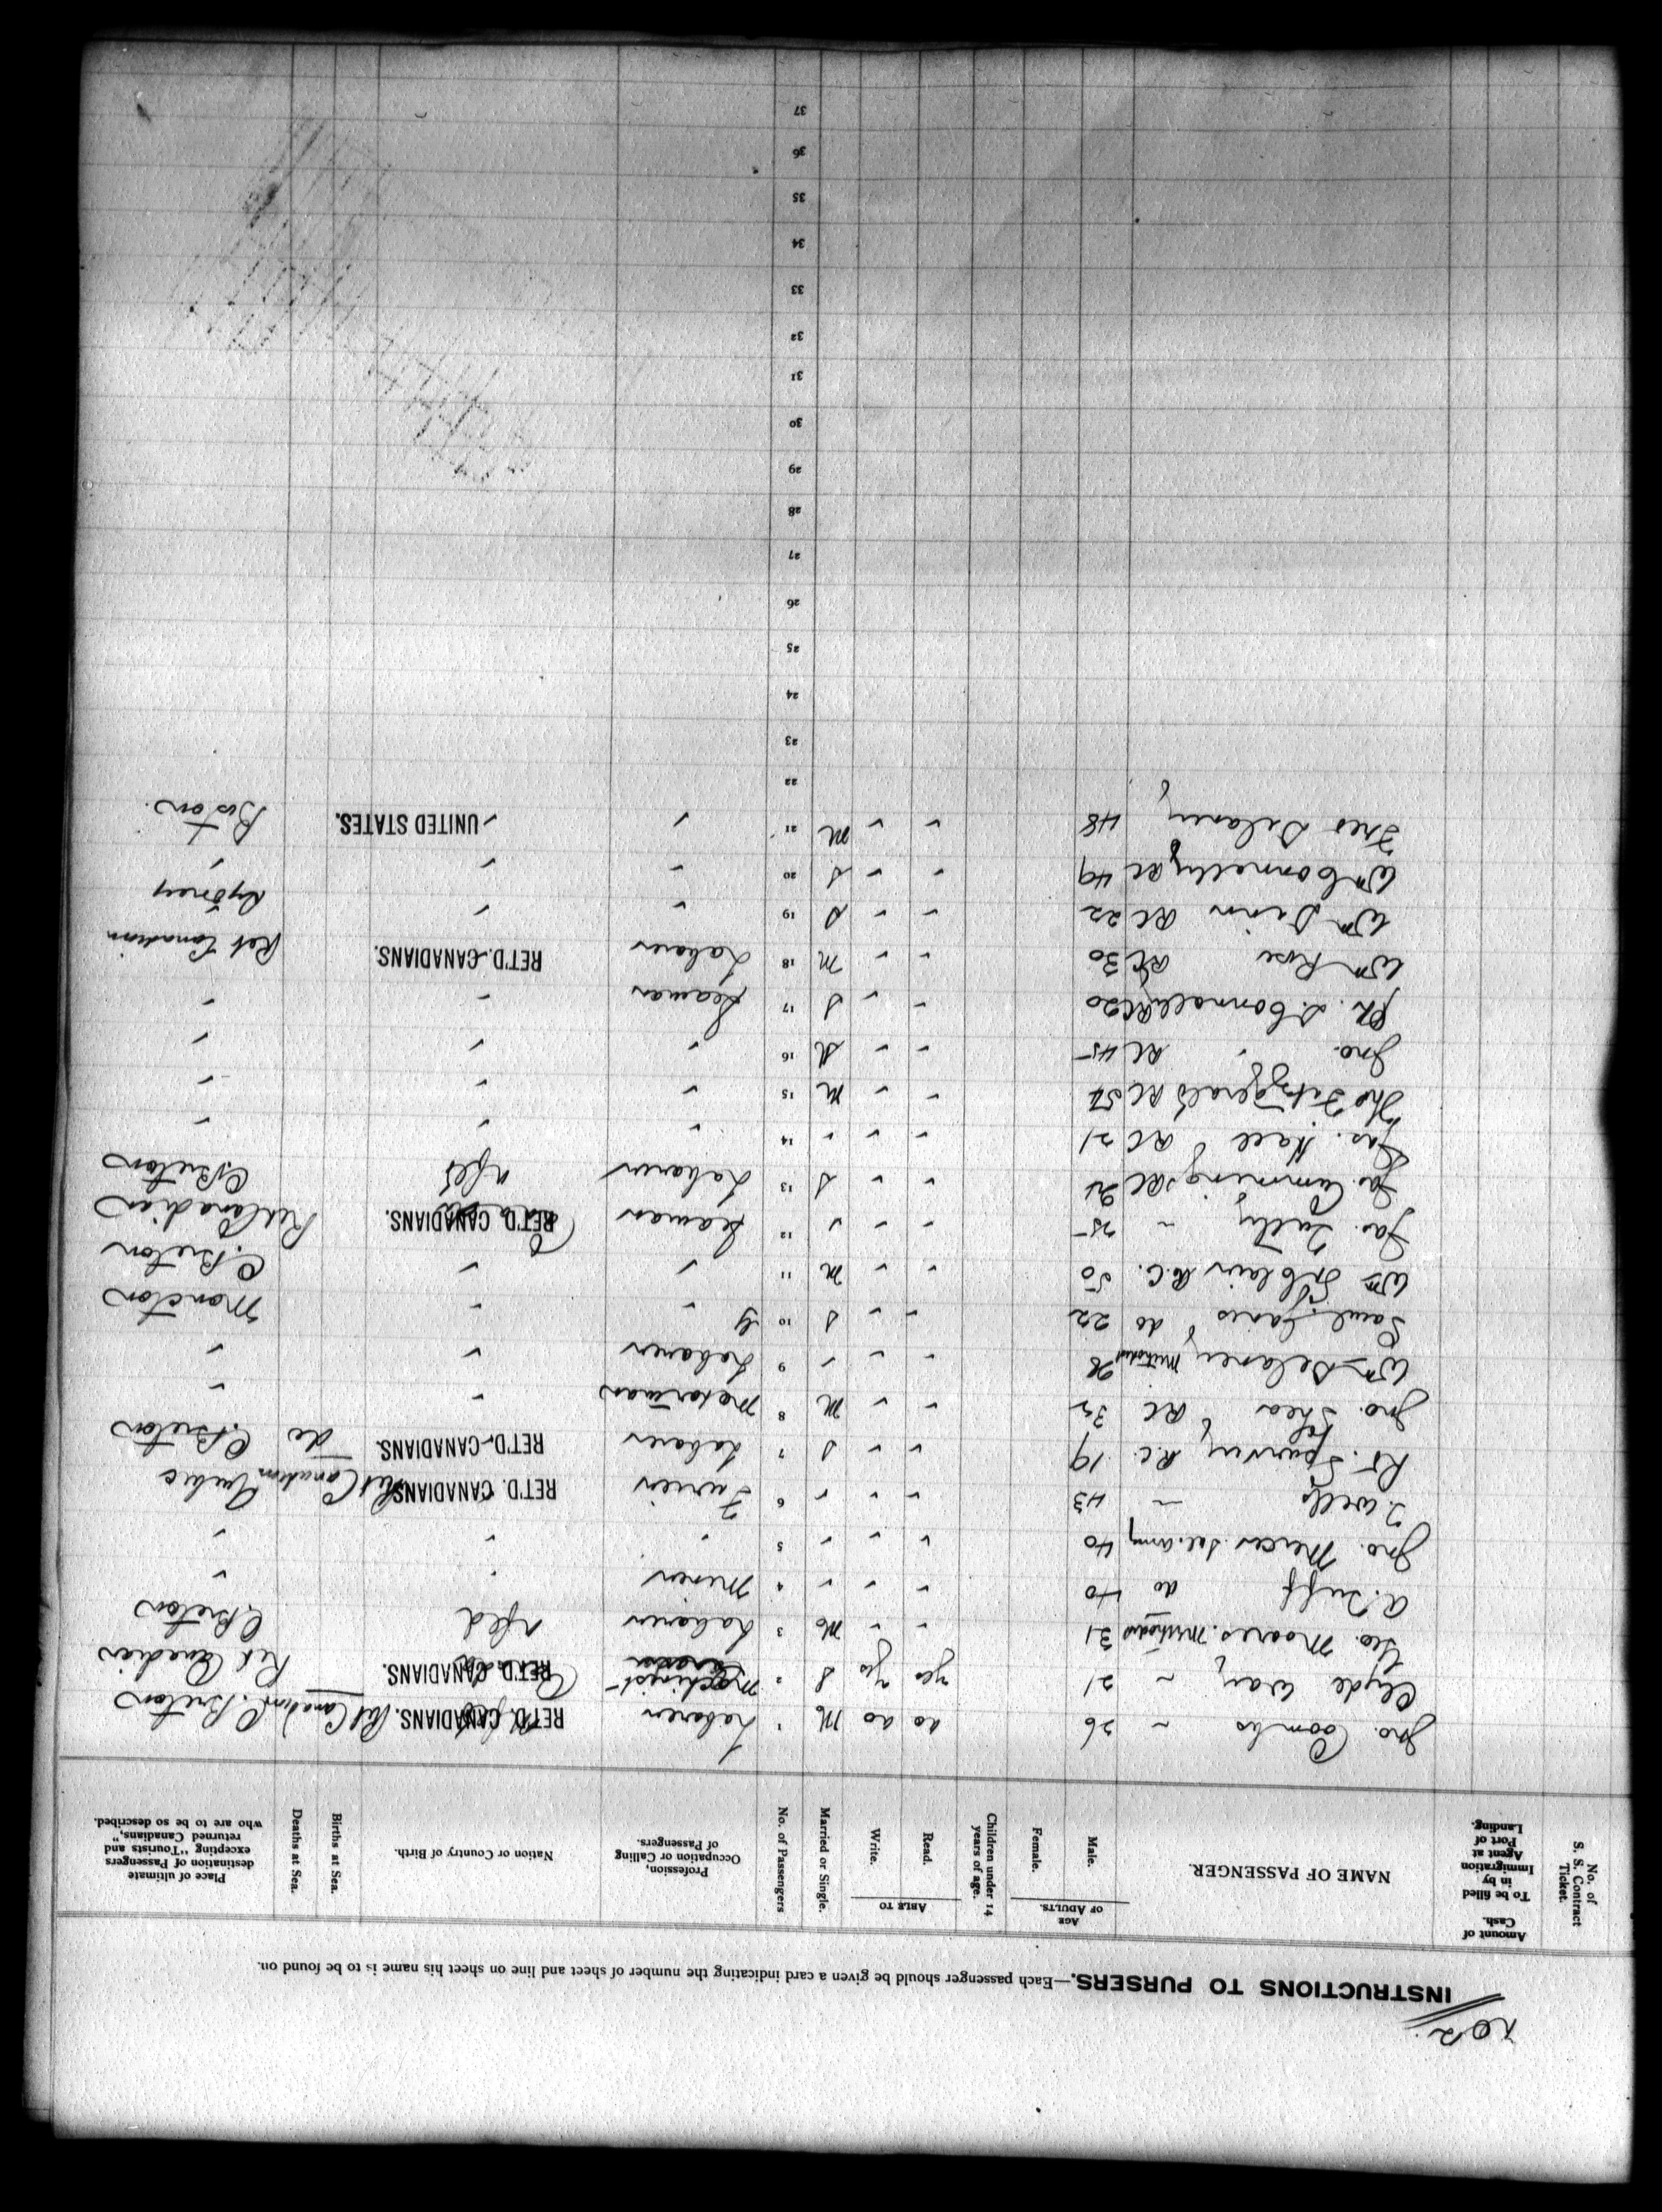 202.
INSTRUCTIONS TO PURSERS.—Each passenger should be given a card indicating the number of sheet and line on sheet his name is to be found on.
No. of S. S. Contract Ticket.
Amount of Cash. To be filled in by Immigration Agent at Port of Landing.
NAME OF PASSENGER.
AGE OF ADULTS. Male. Female.
Children under 14 years of age.
ABLE TO Read. Write.
Married or Single.
No. of Passengers
Profession, Occupation or Calling of Passengers.
Nation or Country of Birth.
Births at Sea.
Deaths at Sea.
Place of ultimate destination of Passengers excepting "Tourists and returned Canadians," who are to be so described.
Jno. Coombs ~ 26 do do M 1 Laborer RET'D. CANADIANS. Ret Canadian C. Breton
Clyde Way ~ 21 yes yes S 2 Machinist RET'D. CANADIANS. Ret Canadian
Geo. Moores. Methodist 31 " " M 3 Laborer Nfld C. Breton
A. Tuff do 40 " " " 4 Miner " "
Jno. Mercer Sal. Army 40 " " " 5 " " "
J. Wells ~ 43 " " " 6 Furrier RET'D. CANADIANS. Ret Canadian Quebec
R. Spurvey R.C. 19 " " S 7 Laborer RET'D. CANADIANS. do C. Breton
Jno. Shea RC 32 " " M 8 Motorman " "
Wm Delaney Methodist 28 " " " 9 Laborer " "
Saml. Davis do 22 " " S 10 " " Moncton
Wm St. Clair R.C. 50 " " M 11 " " C. Breton
Jas. Tully ~ 25 " " " 12 Seaman RET'D. CANADIANS. Ret Canadian
Jas. Cummings RC 24 " " S 13 Laborer Nfld C Breton
Jas. Hall RC 21 " " " 14 " " "
Tho Fitzgerald RC 57 " " M 15 " " "
Jno. " RC 45 " " M 16 " " "
P. L. Connolly RC 20 " " S 17 Seaman " "
Wm Rose RC 30 " " M 18 Laborer RET'D. CANADIANS. Ret Canadian
Wm Dinn RC 22 " " S 19 " " Sydney
Wm Connelly RC 49 " " S 20 " " "
Fres Delaney 48 " " M 21 " " UNITED STATES. Boston.
22
23
24
25
26
27
28
29
30
31
32
33
34
35
36
37